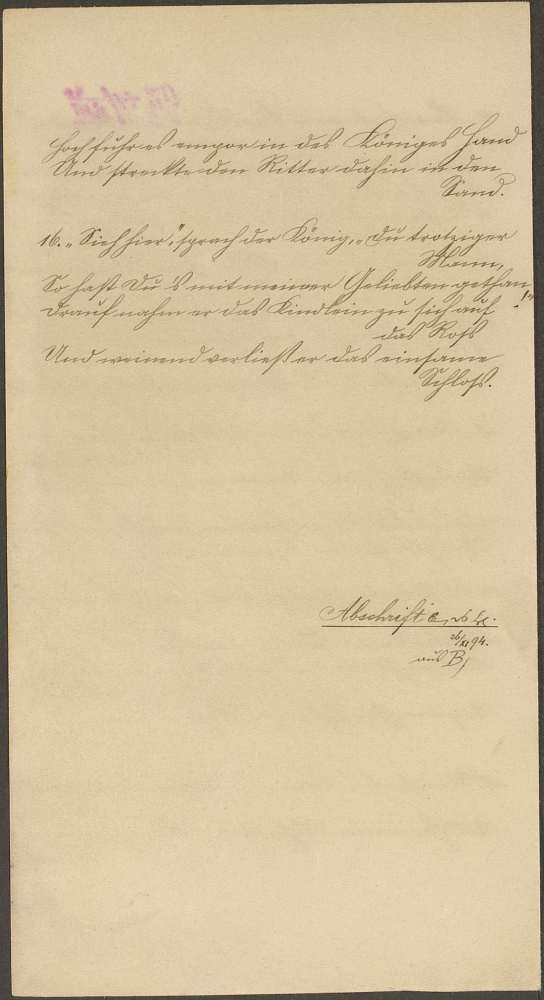 Hoch fuhr es empor in des Königes Hand
Und streckte den Ritter dahin in den
Sand.
16. „Sieh hier," sprach der König, „Du trotziger
Mann,
So hast Du's mit meiner Geliebten gethan!"
Drauf nahm er das Kindlein zu sich auf
das Roß
Und weinend verließ er das einsame
Schloß.
Abschrift
26/XI 94.
aus B,